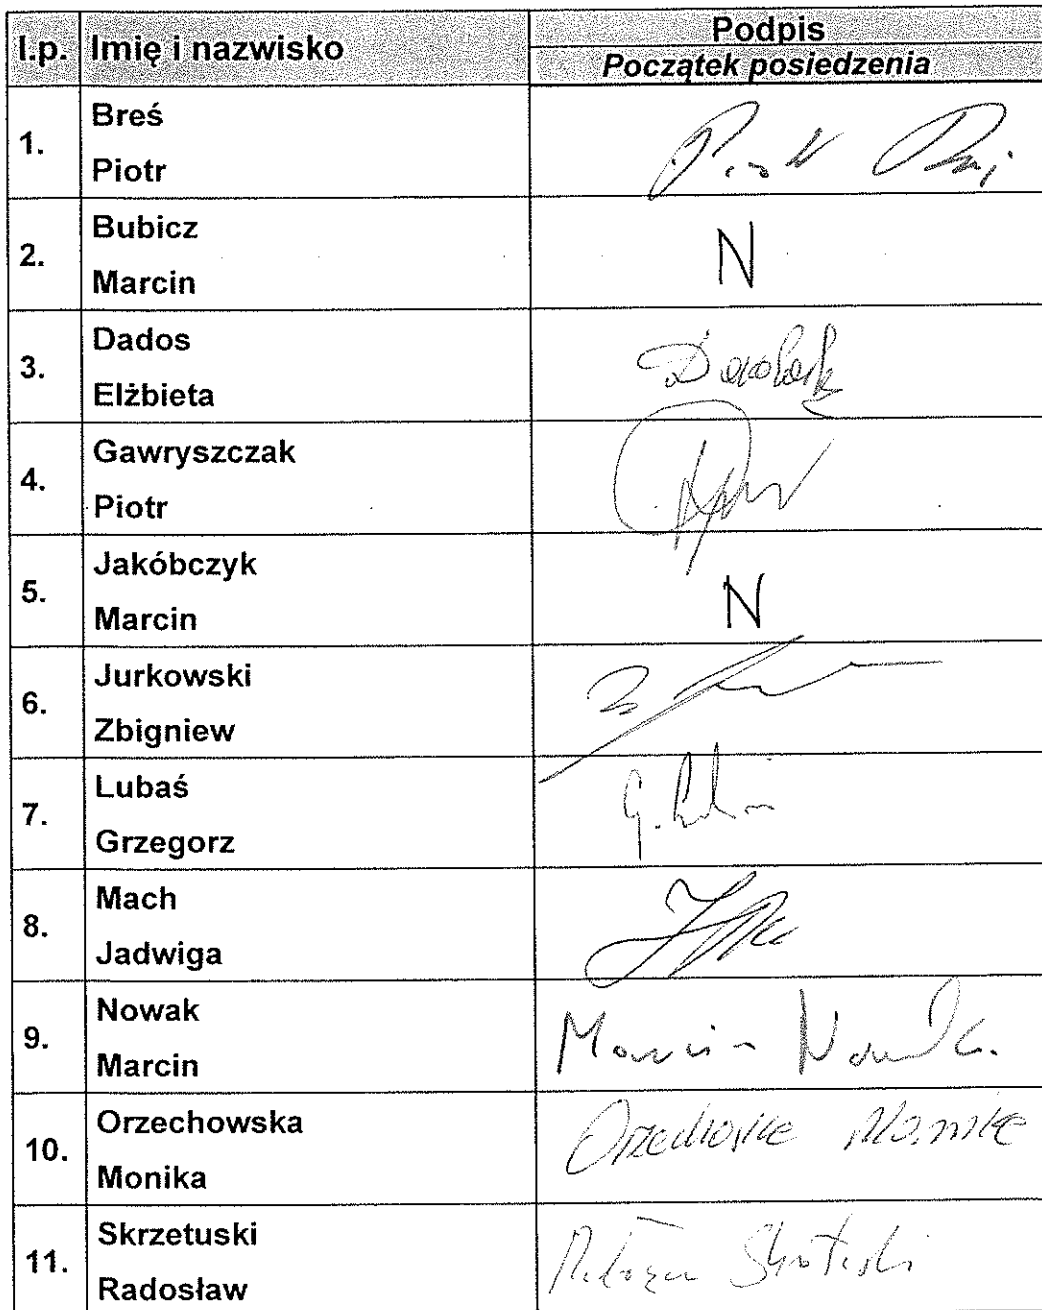 l.p. Imię i nazwisko Podpis
Początek posiedzenia
1. Breś
Piotr
2. Bubicz N
Marcin
3. Dados
Elżbieta
4. Gawryszczak
Piotr
5. Jakóbczyk N
Marcin
6. Jurkowski
Zbigniew
7. Lubaś
Grzegorz
8. Mach
Jadwiga
9. Nowak Marcin Nowak
Marcin
10. Orzechowska Orzechowska Monika
Monika
11. Skrzetuski
Radosław